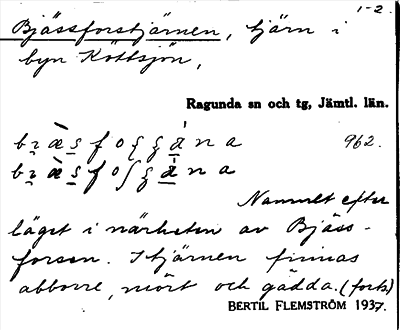 1-2.
Bjässforstjärnen, tjärn i
byn Köttsjön,
Ragunda sn och tg, Jämtl. län.
962.
Namnet efter
läget i närheten av Bjäss-
forsen. I tjärnen finnas
abborre, mört och gädda. (forts.)
BERTIL FLEMSTRÖM 1937.